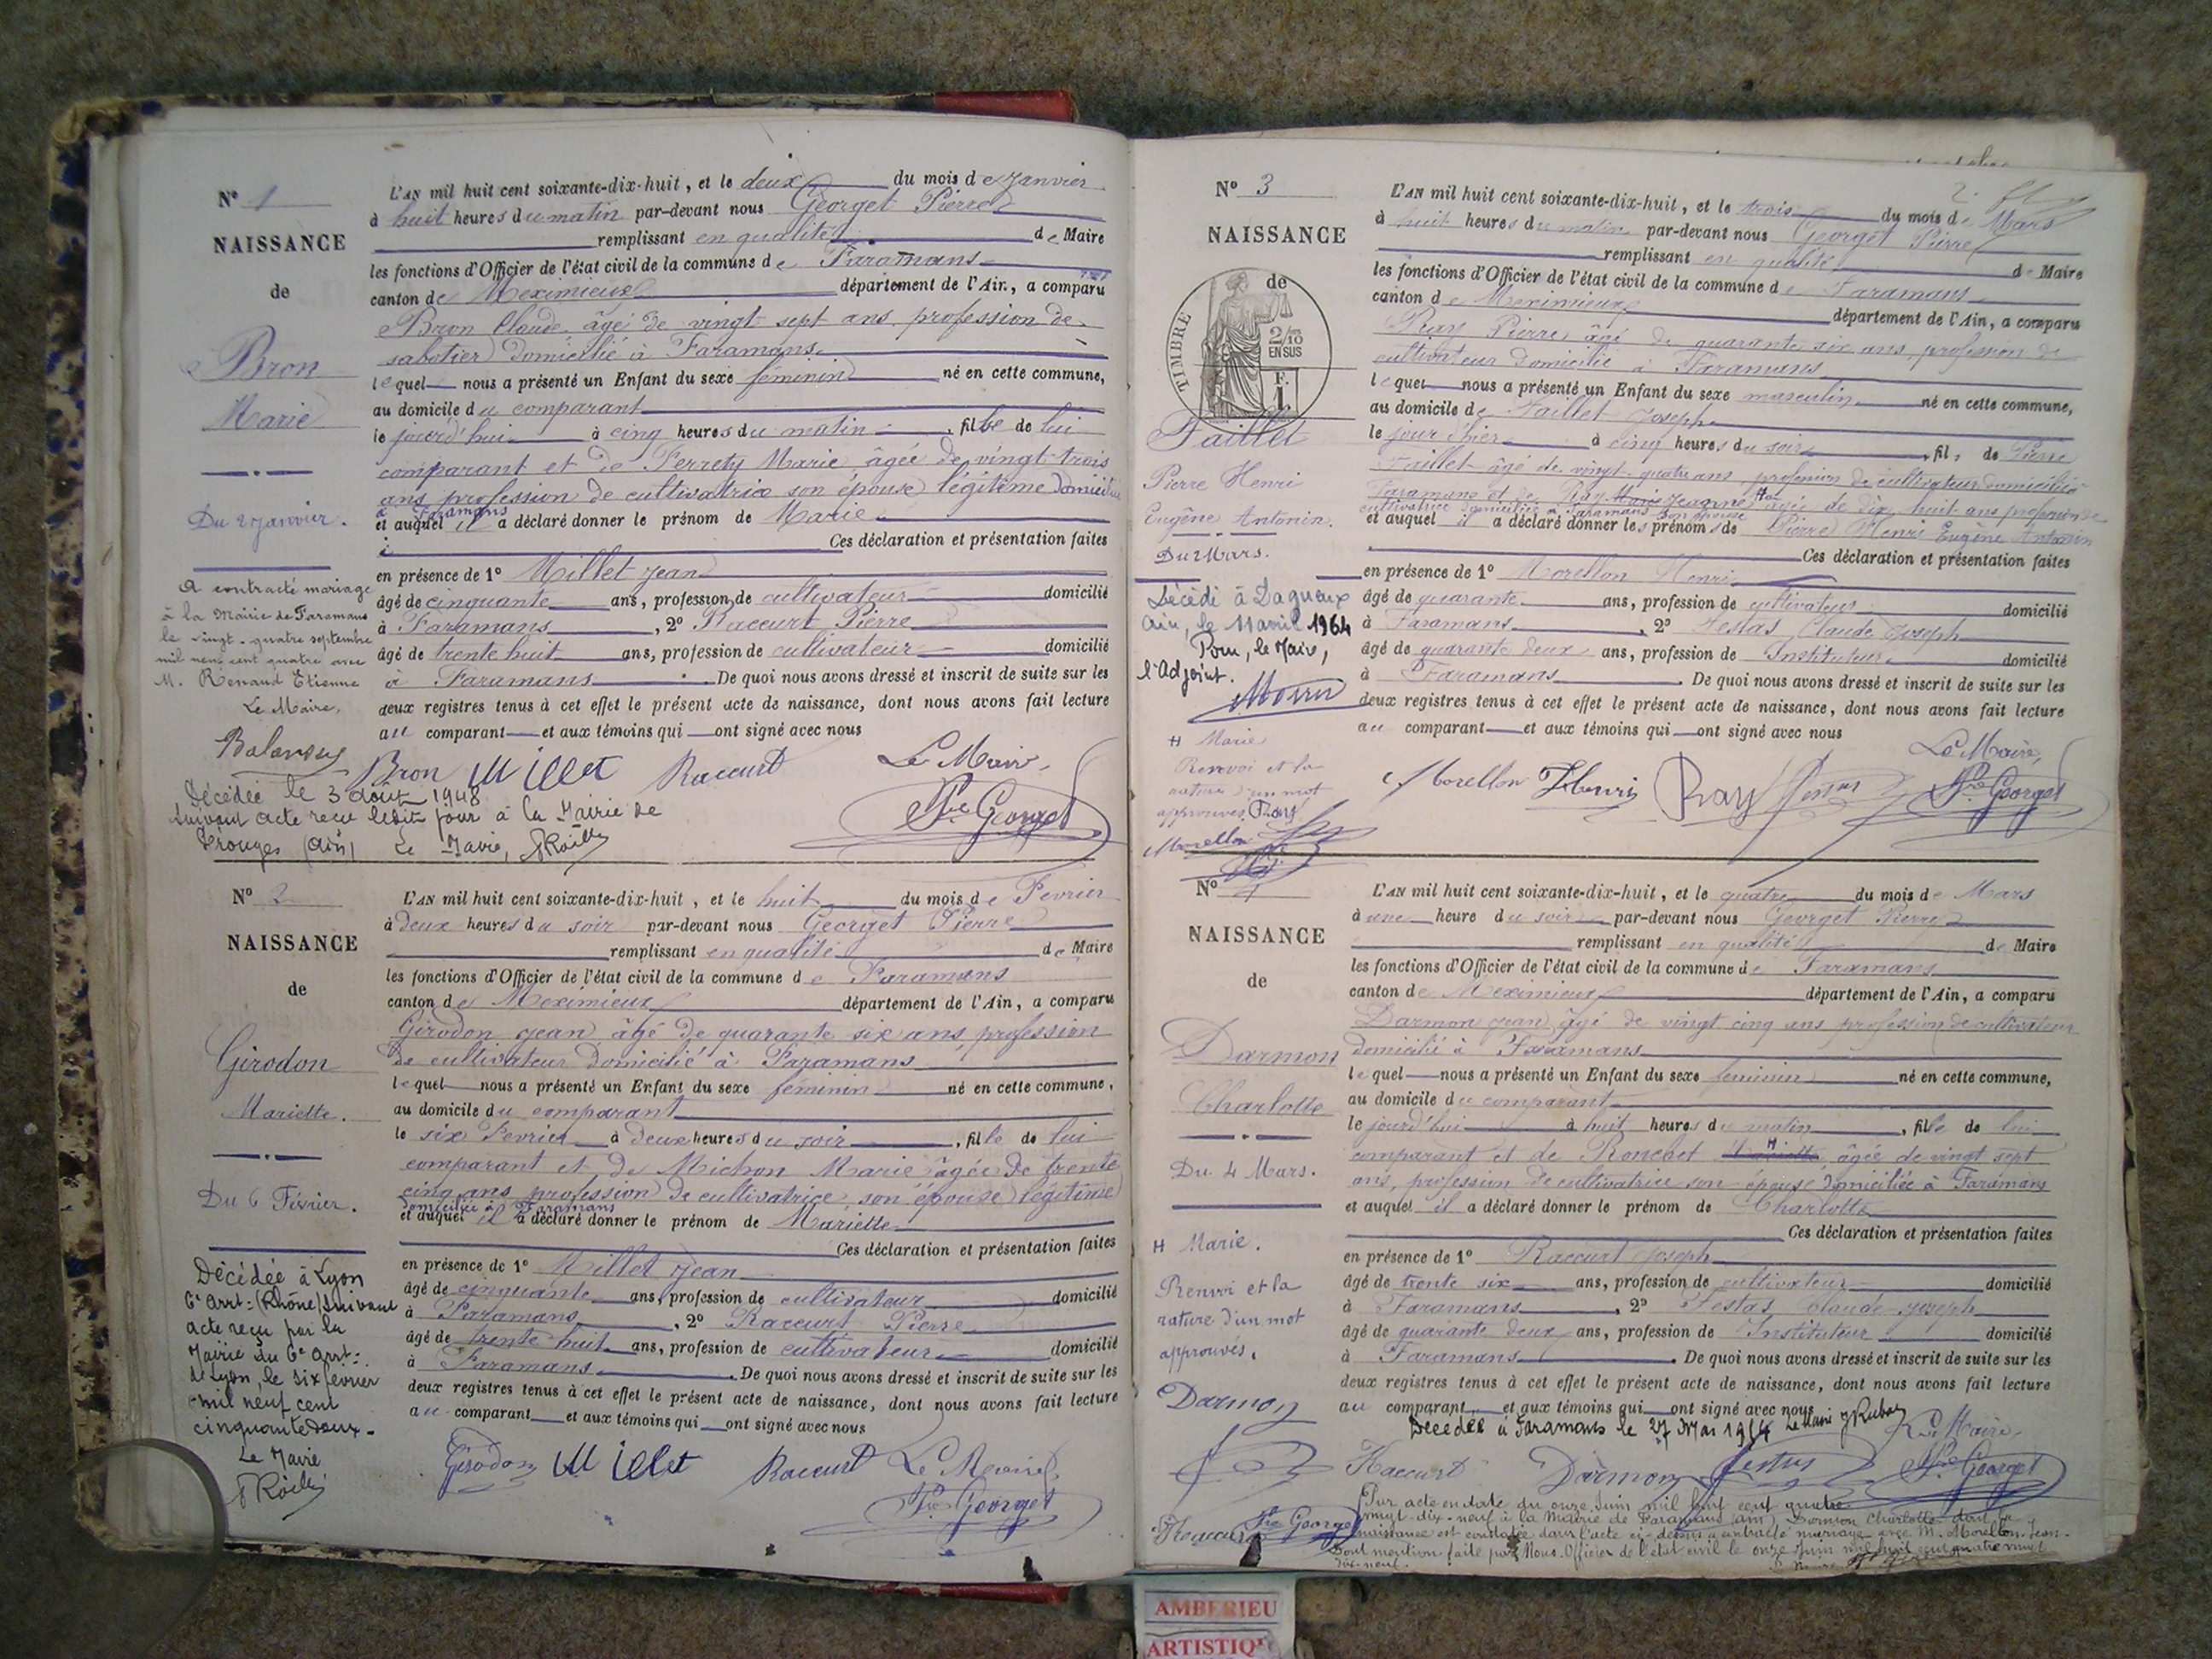 N° 1
NAISSANCE
de
Bron
Marie
Du 2 Janvier.
A contracté mariage
à la Mairie de Faramans
le vingt-quatre septembre
mil neuf cent quatre avec
M. Renaud Etienne
Le Maire,
L'AN mil huit cent soixante-dix-huit, et le deux du mois de Janvier
à huit heures du matin par-devant nous Georget Pierre
remplissant en qualité de Maire
les fonctions d'Officier de l'état civil de la commune de Faramans
canton de Meximieux département de l'Ain, a comparu
Bron Claude âgé de vingt sept ans profession de
sabotier domicilié à Faramans
lequel nous a présenté un Enfant du sexe féminin né en cette commune,
au domicile du comparant
le jourd'hui à cinq heures du matin, fille de lui
comparant et de Ferrety Marie âgée de vingt trois
ans profession de cultivatrice son épouse légitime domiciliée
à Faramans
et auquel il a déclaré donner le prénom de Marie
Ces déclaration et présentation faites
en présence de 1° Millet Jean
âgé de cinquante ans, profession de cultivateur domicilié
à Faramans, 2° Raccurt Pierre
âgé de trente huit ans, profession de cultivateur domicilié
à Faramans. De quoi nous avons dressé et inscrit de suite sur les
deux registres tenus à cet effet le présent acte de naissance, dont nous avons fait lecture
au comparant et aux témoins qui ont signé avec nous
Bron Millet Raccurt Le Maire,
Pre Georget
Décédée le 3 août 1948
suivant acte reçu ledit jour à la Mairie de
Pérouges (Ain) Le Maire,
N° 2
NAISSANCE
de
Girodon
Mariette.
Du 6 Février.
Décédée à Lyon
6e Arrt: (Rhône) suivant
acte reçu par la
Mairie du 6e Arrt:
de Lyon, le six février
mil neuf cent
cinquante deux.
Le Maire
L'AN mil huit cent soixante-dix-huit, et le huit du mois de Fevrier
à deux heures du soir par-devant nous Georget Pierre
remplissant en qualité de Maire
les fonctions d'Officier de l'état civil de la commune de Faramans
canton de Meximieux département de l'Ain, a comparu
Girodon Jean âgé de quarante six ans profession
de cultivateur domicilié à Faramans
lequel nous a présenté un Enfant du sexe féminin né en cette commune,
au domicile du comparant
le six Fevrier à deux heures du soir, fille de lui
comparant et de Michon Marie âgée de trente
cinq ans profession de cultivatrice son épouse légitime
domiciliée à Faramans
et auquel il a déclaré donner le prénom de Mariette
Ces déclaration et présentation faites
en présence de 1° Millet Jean
âgé de cinquante ans, profession de cultivateur domicilié
à Faramans, 2° Raccurt Pierre
âgé de trente huit ans, profession de cultivateur domicilié
à Faramans. De quoi nous avons dressé et inscrit de suite sur les
deux registres tenus à cet effet le présent acte de naissance, dont nous avons fait lecture
au comparant et aux témoins qui ont signé avec nous
Girodon Millet Raccurt Le Maire,
Pre Georget
N° 3
NAISSANCE
de
TIMBRE
2/10
EN SUS
F.
1.
Faillet
Pierre Henri
Eugène Antonin.
Du 2 Mars.
Décédé à Dagneux
Ain, le 11 avril 1964
Pour le Maire,
l'Adjoint.
# Marie
Renvoi et la
rature d'un mot
approuvés Ray
Morellon
2.
L'AN mil huit cent soixante-dix-huit, et le trois du mois de Mars
à huit heures du matin par-devant nous Georget Pierre
remplissant en qualité de Maire
les fonctions d'Officier de l'état civil de la commune de Faramans
canton de Meximieux département de l'Ain, a comparu
Ray Pierre, âgé de quarante six ans, profession de
cultivateur domicilié à Faramans
lequel nous a présenté un Enfant du sexe masculin né en cette commune,
au domicile de Faillet Joseph
le jour d'hier à cinq heures du soir, fils de Pierre
Faillet âgé de vingt-quatre ans, profession de cultivateur domicilié
Faramans et de Ray Marie Jeanne # âgée de dix huit ans profession de
cultivatrice domiciliée à Faramans son épouse
et auquel il a déclaré donner les prénoms de Pierre Henri Eugène Antonin
Ces déclaration et présentation faites
en présence de 1° Morellon Henri
âgé de quarante ans, profession de cultivateur domicilié
à Faramans, 2° Festas Claude Joseph
âgé de quarante deux ans, profession de Instituteur domicilié
à Faramans. De quoi nous avons dressé et inscrit de suite sur les
deux registres tenus à cet effet le présent acte de naissance, dont nous avons fait lecture
au comparant et aux témoins qui ont signé avec nous
Le Maire,
Morellon Henri Ray Festas Pre Georget
N° 4
NAISSANCE
de
Darmon
Charlotte
Du 4 Mars.
# Marie.
Renvoi et la
rature d'un mot
approuvés,
Darmon
Raccurt Pre Georget
L'AN mil huit cent soixante-dix-huit, et le quatre du mois de Mars
à une heure du soir par-devant nous Georget Pierre
remplissant en qualité de Maire
les fonctions d'Officier de l'état civil de la commune de Faramans
canton de Meximieux département de l'Ain, a comparu
Darmon Jean, âgé de vingt cinq ans profession de cultivateur
domicilié à Faramans
lequel nous a présenté un Enfant du sexe féminin né en cette commune,
au domicile du comparant
le jourd'hui à huit heures du matin, fille de lui
comparant et de Ronchet # âgée de vingt sept
ans, profession de cultivatrice son épouse domiciliée à Faramans
et auquel il a déclaré donner le prénom de Charlotte
Ces déclaration et présentation faites
en présence de 1° Raccurt Joseph
âgé de trente six ans, profession de cultivateur domicilié
à Faramans, 2° Festas Claude Joseph
âgé de quarante deux ans, profession de Instituteur domicilié
à Faramans. De quoi nous avons dressé et inscrit de suite sur les
deux registres tenus à cet effet le présent acte de naissance, dont nous avons fait lecture
au comparant et aux témoins qui ont signé avec nous
Décédée à Faramans le 27 Mai Le Maire
Le Maire,
Raccurt Darmon Festas Pre Georget
Par acte en date du onze Juin mil huit cent quatre
vingt-dix-neuf à la Mairie de Faramans (Ain) Darmon Charlotte dont la
naissance est constatée dans l'acte ci-dessus a contracté mariage avec M. Morellon Jean-
Dont mention faite par Nous Officier de l'état civil le onze Juin mil huit cent quatre vingt
dix-neuf.
AMBERIEU
ARTISTIQ